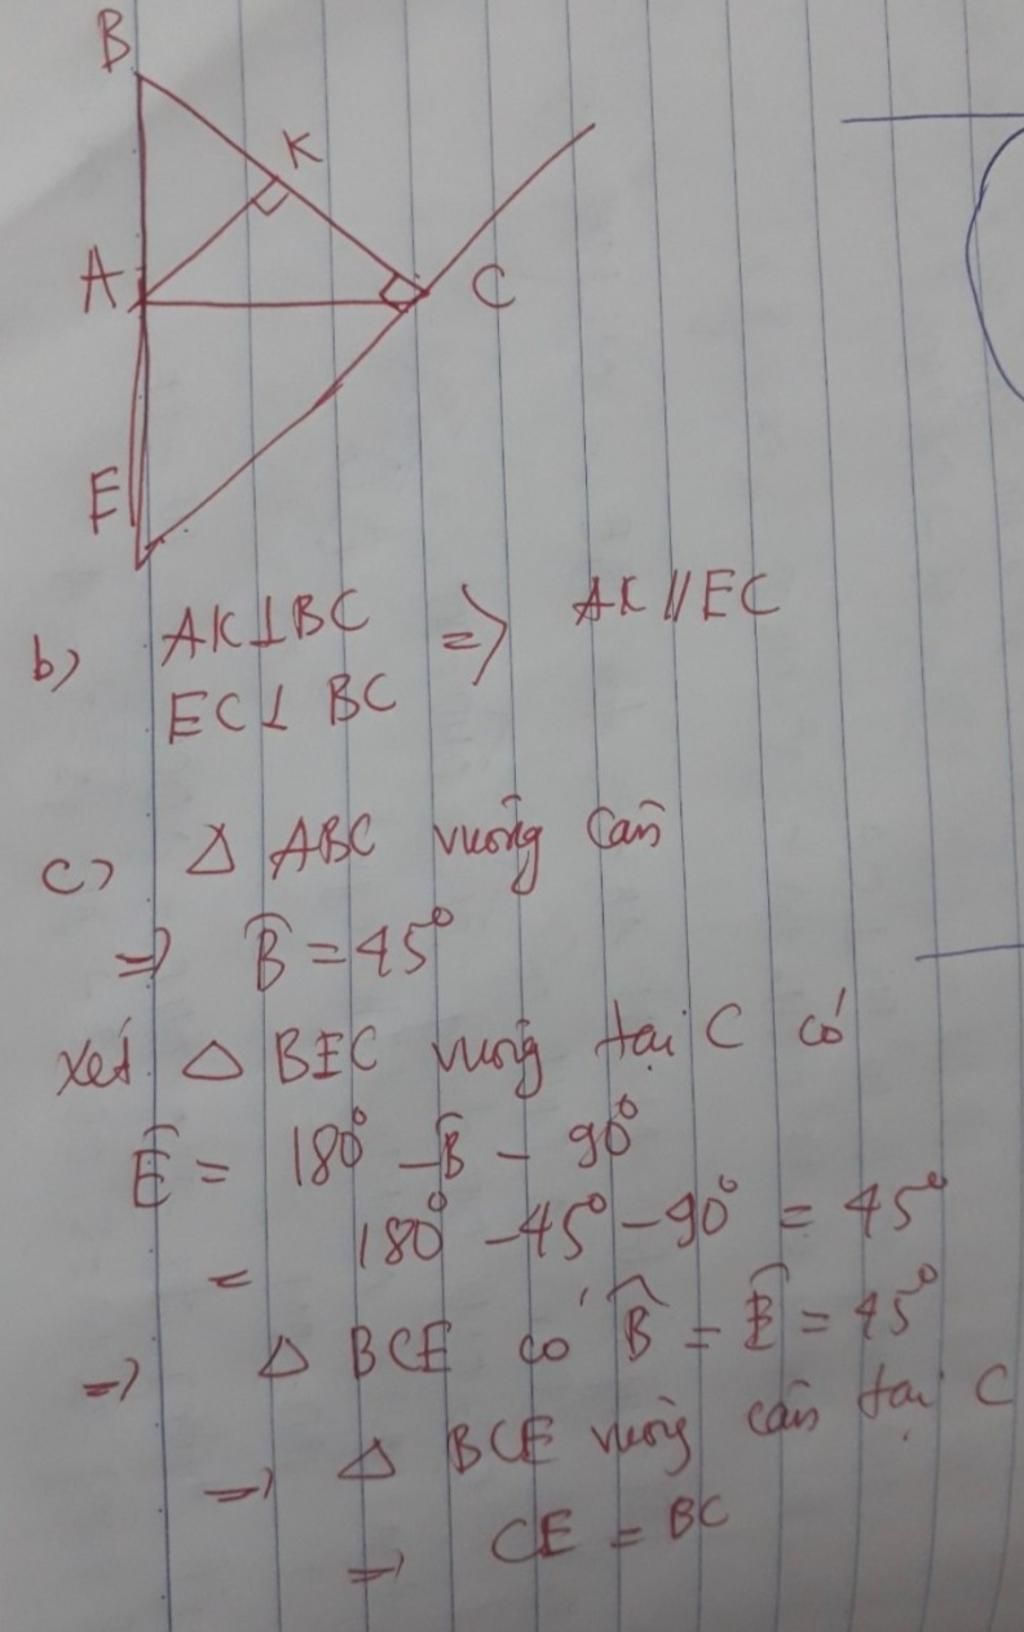 B
K
A
C
E
b) AK⊥BC => AK // EC
EC⊥ BC
c) Δ ABC vuông cân
=> B̂ = 45°
xét Δ BEC vuông tại C có
Ê = 180° - B̂ - 90°
= 180° - 45° - 90° = 45°
=> Δ BCE có B̂ = Ê = 45°
=> Δ BCE vuông cân tại C
=> CE = BC